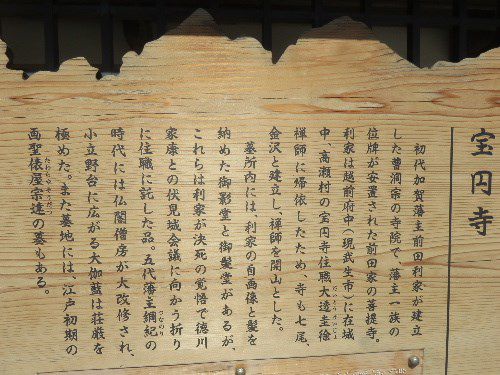 宝円寺
初代加賀藩主前田利家が建立
した曹洞宗の寺院で、藩主一族の
位牌が安置された前田家の菩提寺。
利家は越前府中(現武生市)に在城
中、高瀬村の宝円寺住職大透圭徐
禅師に帰依したため、寺も七尾、
金沢と建立し、禅師を開山とした。
墓所内には、利家の自画像と髪を
納めた御影堂と御髪堂があるが、
これらは利家が決死の覚悟で徳川
家康との伏見城会議に向かう折り
に住職に託した品。五代藩主綱紀の
つなのり
時代には仏閣僧房が大改修され、
小立野台に広がる大伽藍は荘厳を
極めた。また墓地には、江戸初期の
画聖俵屋宗達の墓もある。
たわらやそうたつ